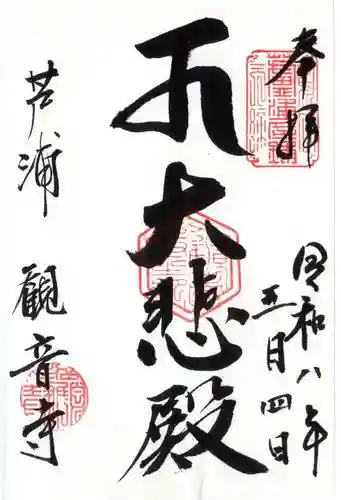 奉拝
令和八年
五月四日
大悲殿
芦浦
観音寺